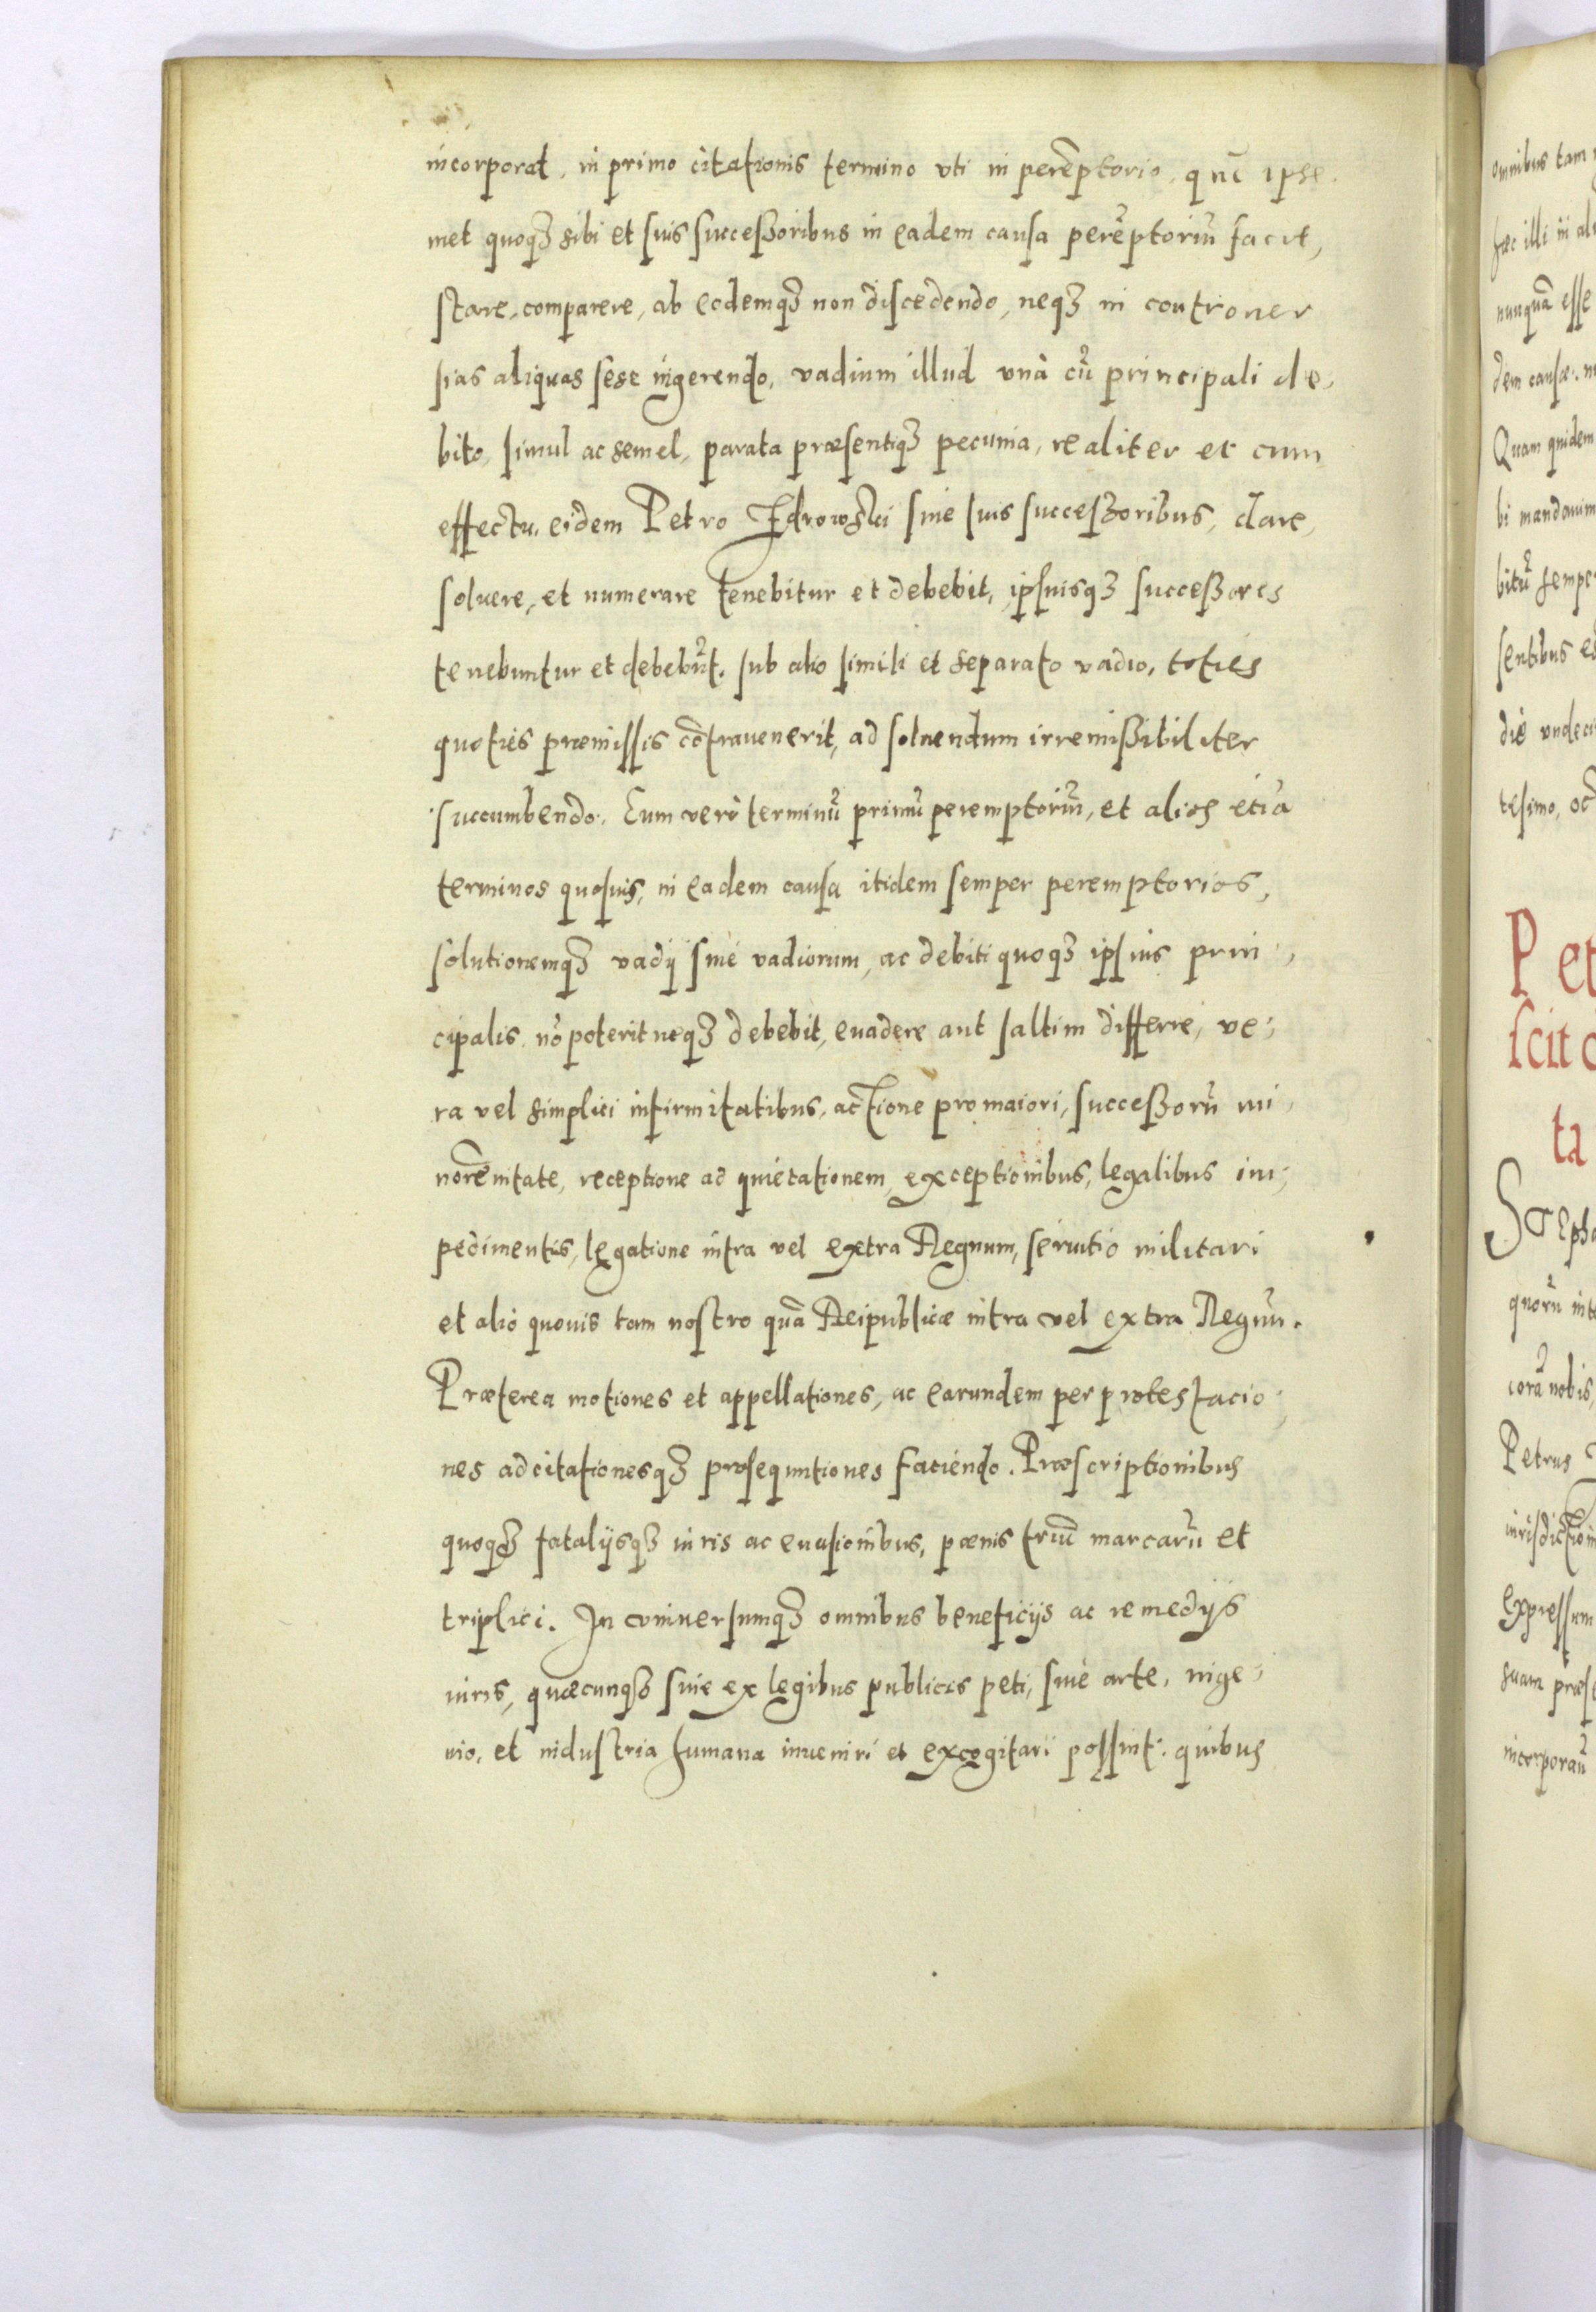 incorporat, in primo citationis termino vti in perẽptorio, q nc̃ ipse
met quoqȝ sibi et suis successoribus in eadem causa perẽptoriũ facit,
stare, comparere, ab eodemqȝ non discedendo, neqȝ in controuer
sias aliquas sese ingerendo, vadium illud vnà cũ principali de,
bito, simul ac semel, parata præsentiqȝ pecunia, realiter et cum
effectu, eidem Petro Zdrowski siue suis successoribus, dare,
soluere, et numerare tenebitur et debebit, ipsiusqȝ successores
tenebuntur et debebũt. sub alio simili et separato vadio, toties
quoties præmissis cõtrauenerit, ad soluendum irremissibiliter
succumbendo. Eum verò terminũ primũ peremptoriũ, et alios etiã
terminos quosuis, in eadem causa itidem semper peremptorios,
solutionemqȝ vadij siue vadiorum, ac debiti quoqȝ ipsius prin,
cipalis, nõ poterit neqȝ debebit, euadere aut saltim differre, ve,
ra vel simplici infirmitatibus, actione pro maiori, successorũ mi,
norẽnitate, receptione ad quietationem, exceptionibus, legalibus im,
pedimentis, legatione intra vel extra Regnum, seruitio militari
et alio quouis tam nostro quã Reipublicæ intra vel extra Regnũ.
Præterea motiones et appellationes, ac earundem per protestacio,
nes ad citationesqȝ prosequutiones faciendo. Præscriptionibus
quoqȝ fatalijsqȝ iuris ac euasionibus, pœnis triũ marcarũ et
triplici. In vniuersumqȝ omnibus beneficijs ac remedijs
iuris, quæcunqȝ siue ex legibus publicis peti, siue arte, inge,
nio, et industria humana inueniri et excogitari possint: quibus
omnibus tam
hæc illi in
nunquã esse
dem causæ.
Quam quidem
bi mandauim
bitũ sempe
sentibus
die vndeci
tesimo,
Pet
scit
ta
Steph
quorũ int
corã nobis,
Petrus
iurisdictio
Expressum
suam præs
incorporau